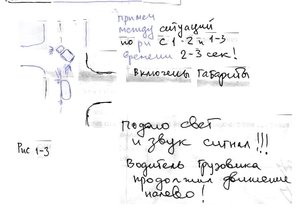 примем
между ситуаций
по рис 1-2 и 1-3
времени 2-3 сек!
Включены габариты
Подало свет
и звук сигнал!!!
Водитель грузовика
продолжил движение
налево!
Рис 1-3